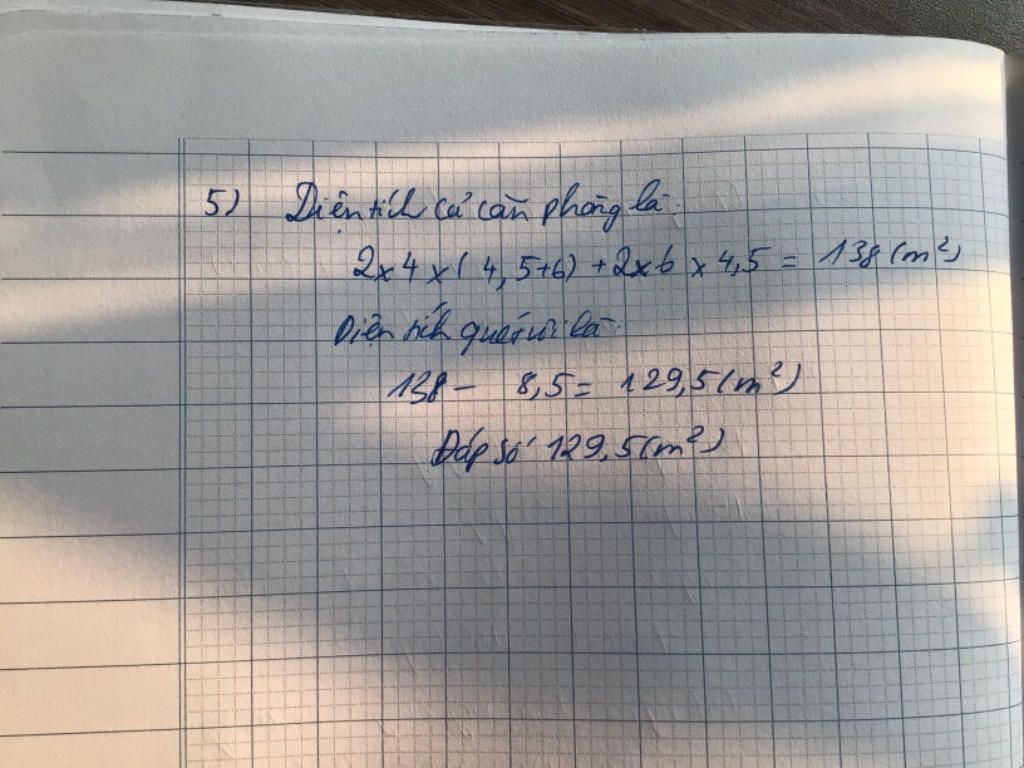 5) Diện tích cả căn phòng là:
2 x 4 x ( 4,5+6) + 2 x 6 x 4,5 = 138 (m²)
Diện tích quét vôi là:
138 - 8,5 = 129,5 (m²)
Đáp số 129,5 (m²)